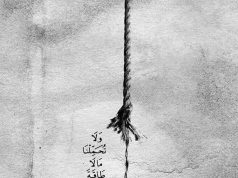 وَلَا
تُحَمِّلْنَا
مَا لَا
طَاقَةَ